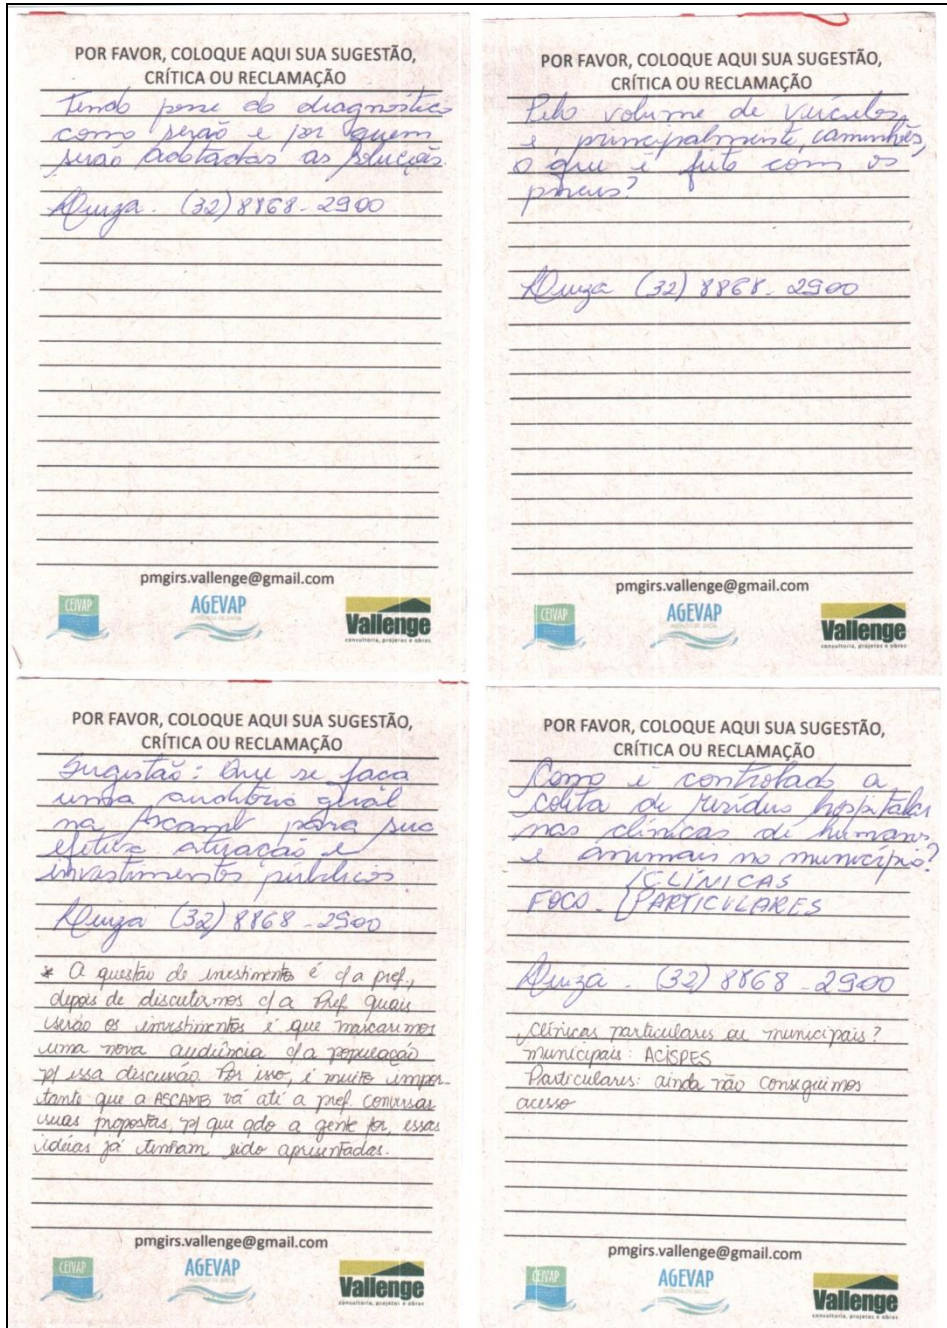 POR FAVOR, COLOQUE AQUI SUA SUGESTÃO,
CRÍTICA OU RECLAMAÇÃO
Tendo posse do diagnóstico
como serão e por quem
serão adotadas as soluções.
(32) 8868-2900
pmgirs.vallenge@gmail.com
CEIVAP
AGEVAP
Vallenge
consultoria, projetos e obras
POR FAVOR, COLOQUE AQUI SUA SUGESTÃO,
CRÍTICA OU RECLAMAÇÃO
Pelo volume de veículos
e principalmente, caminhões,
o que é feito com os
pneus?
(32) 8868-2900
pmgirs.vallenge@gmail.com
CEIVAP
AGEVAP
Vallenge
consultoria, projetos e obras
POR FAVOR, COLOQUE AQUI SUA SUGESTÃO,
CRÍTICA OU RECLAMAÇÃO
Sugestão: Que se faça
uma auditoria geral
na Ascamb para sua
efetiva atuação e
investimentos públicos.
(32) 8868-2900
* A questão de investimento é c/a pref.,
depois de discutirmos c/a Pref. quais
serão os investimentos é que marcaremos
uma nova audiência c/a população
p/ essa discussão. Por isso, é muito impor-
tante que a ASCAMB vá até a pref. conversar
suas propostas, p/ que qdo a gente for, essas
idéias já tenham sido apresentadas.
pmgirs.vallenge@gmail.com
CEIVAP
AGEVAP
Vallenge
consultoria, projetos e obras
POR FAVOR, COLOQUE AQUI SUA SUGESTÃO,
CRÍTICA OU RECLAMAÇÃO
Como é controlado a
coleta de resíduo hospitalar
nas clínicas de humanos
e animais no município?
FOCO - CLÍNICAS
PARTICULARES
(32) 8868-2900
Clínicas particulares ou municipais?
municipais: ACISPES
Particulares: ainda não conseguimos
acesso
pmgirs.vallenge@gmail.com
CEIVAP
AGEVAP
Vallenge
consultoria, projetos e obras